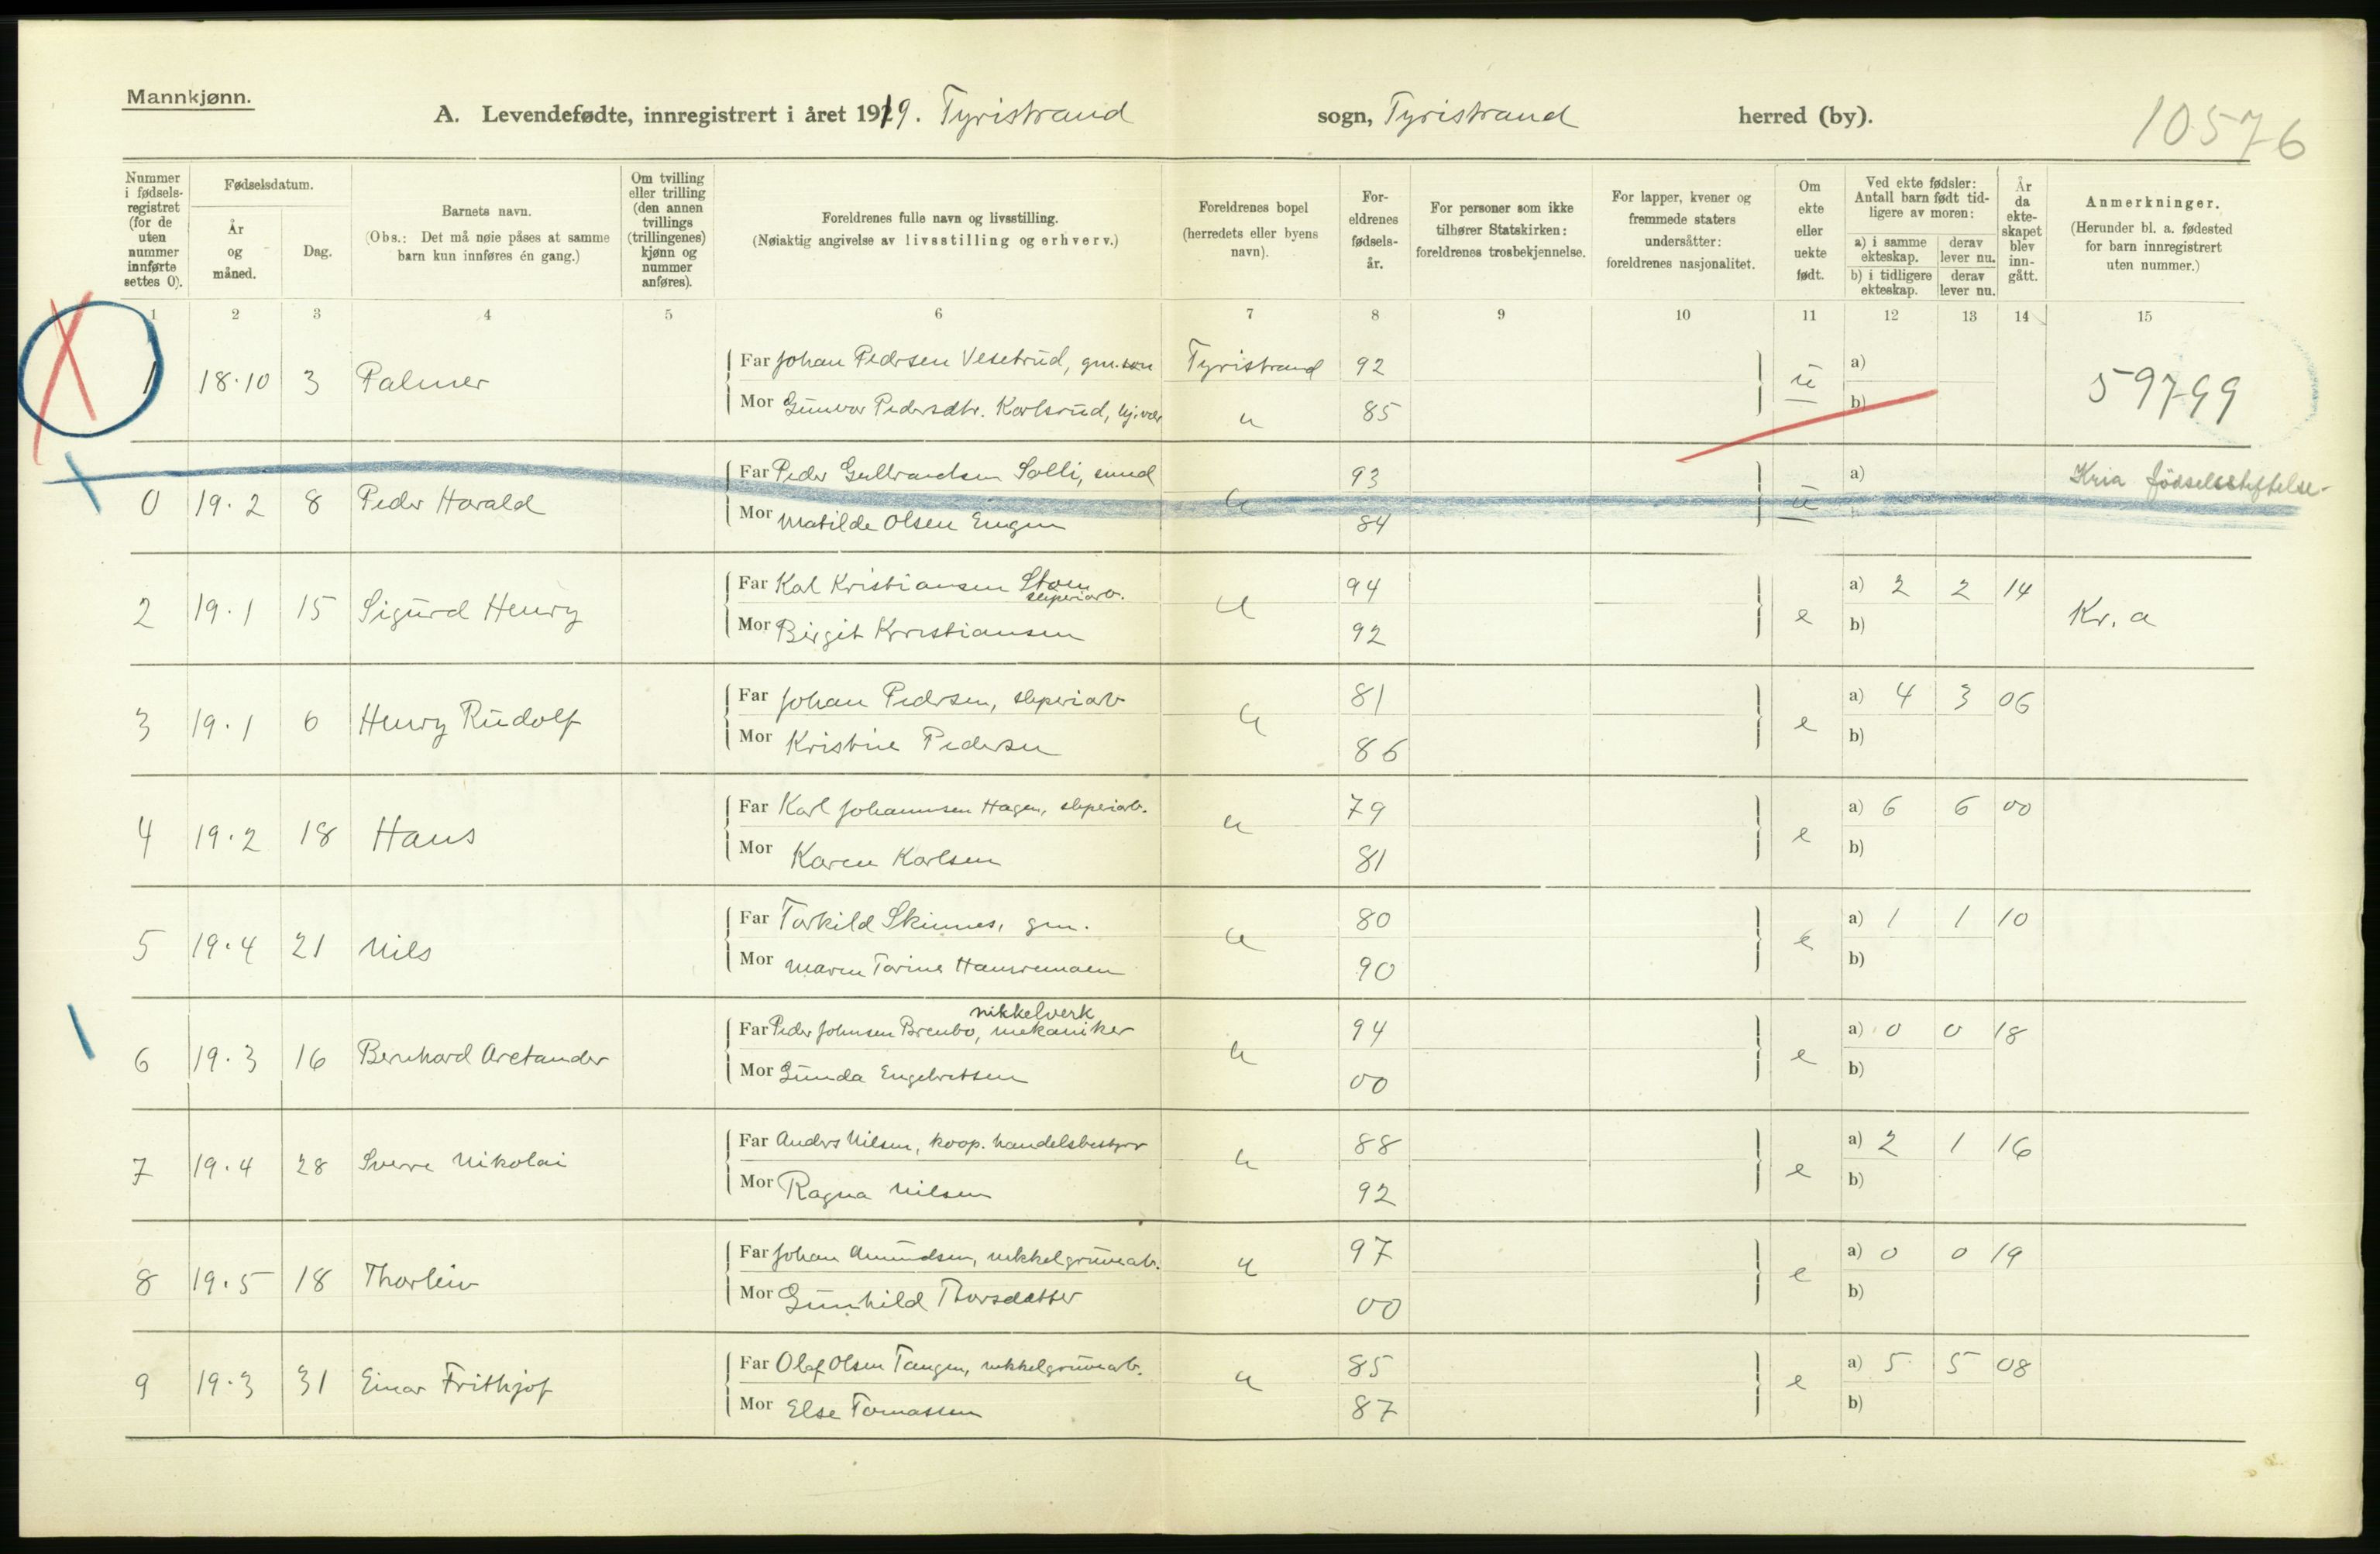 Mannkjønn.
A. Levendefødte, innregistrert i året 1919. Tyristrand sogn, Tyristrand herred (by).
10576
Nummer i fødsels-registret (for de uten nummer innførte settes 0).
Fødselsdatum.
År og måned.
Dag.
Barnets navn.
(Obs.: Det må nøie påses at samme barn kun innføres én gang.)
Om tvilling eller trilling (den annen tvillings (trillingenes) kjønn og nummer anføres).
Foreldrenes fulle navn og livsstilling.
(Nøiaktig angivelse av livsstilling og erhverv.)
Foreldrenes bopel (herredets eller byens navn).
For-eldrenes fødsels-år.
For personer som ikke tilhører Statskirken: foreldrenes trosbekjennelse.
For lapper, kvener og fremmede staters undersåtter: foreldrenes nasjonalitet.
Om ekte eller uekte født.
Ved ekte fødsler: Antall barn født tid-ligere av moren:
a) i samme ekteskap. derav lever nu.
b) i tidligere ekteskap. derav lever nu.
År da ekte-skapet blev inn-gått.
Anmerkninger.
(Herunder bl. a. fødested for barn innregistrert uten nummer.)
1 2 3 4 5 6 7 8 9 10 11 12 13 14 15
1 18.10 3 Palmer Far Johan Pedersen Vesetrud, gm.søn Tyristrand 92 u a) 59799
Mor Gunvor Pedersdtr. Karlsrud, 85 b)
0 19.2 8 Peder Harald Far Peder Gulbrandsen Solli, 93 u a) Kria fødselsstiftelse
Mor Matilde Olsen Engen 84
2 19.1 15 Sigurd Henry Far Kal Kristiansen Stoen sliperiarb. 94 e a) 2 2 14 Kr. a
Mor Birgit Kristiansen 92 b)
3 19.1 6 Henry Rudolf Far Johan Pedersen, sliperiarb 81 e a) 4 3 06
Mor Kristine Pedersen 86 b)
4 19.2 18 Hans Far Karl Johannsen Hagen, sliperiarb. 79 e a) 6 6 00
Mor Karen Karlsen 81 b)
5 19.4 21 Nils Far Torkild Skinnes, gm. 80 e a) 1 1 10
Mor Maren Torine 90 b)
nikkelverk
6 19.3 16 Bernhard Aretander Far Peder Johnsen Brenbo, mekaniker 94 e a) 0 0 18
Mor Gunda Engebretsen 00 b)
7 19.4 28 Sverre Nikolai Far Anders Nilsen, koop. handelsbestyrer 88 e a) 2 1 16
Mor Ragna Nilsen 92 b)
8 19.5 18 Thorleiv Far Johan Amundsen, nikkelgruvearb. 97 e a) 0 0 19
Mor Gunhild Thorsdatter 00 b)
9 19.3 31 Einar Frithjof Far Olaf Olsen Tangen, nikkelgruvearb. 85 e a) 5 5 08
Mor Else Tomassen 87 b)